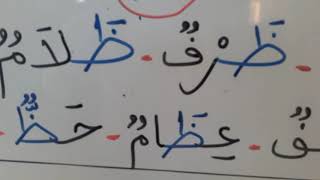 - ظَرْفٌ - ظَلَامٌ
- عِظَامٌ - حَظٌّ -